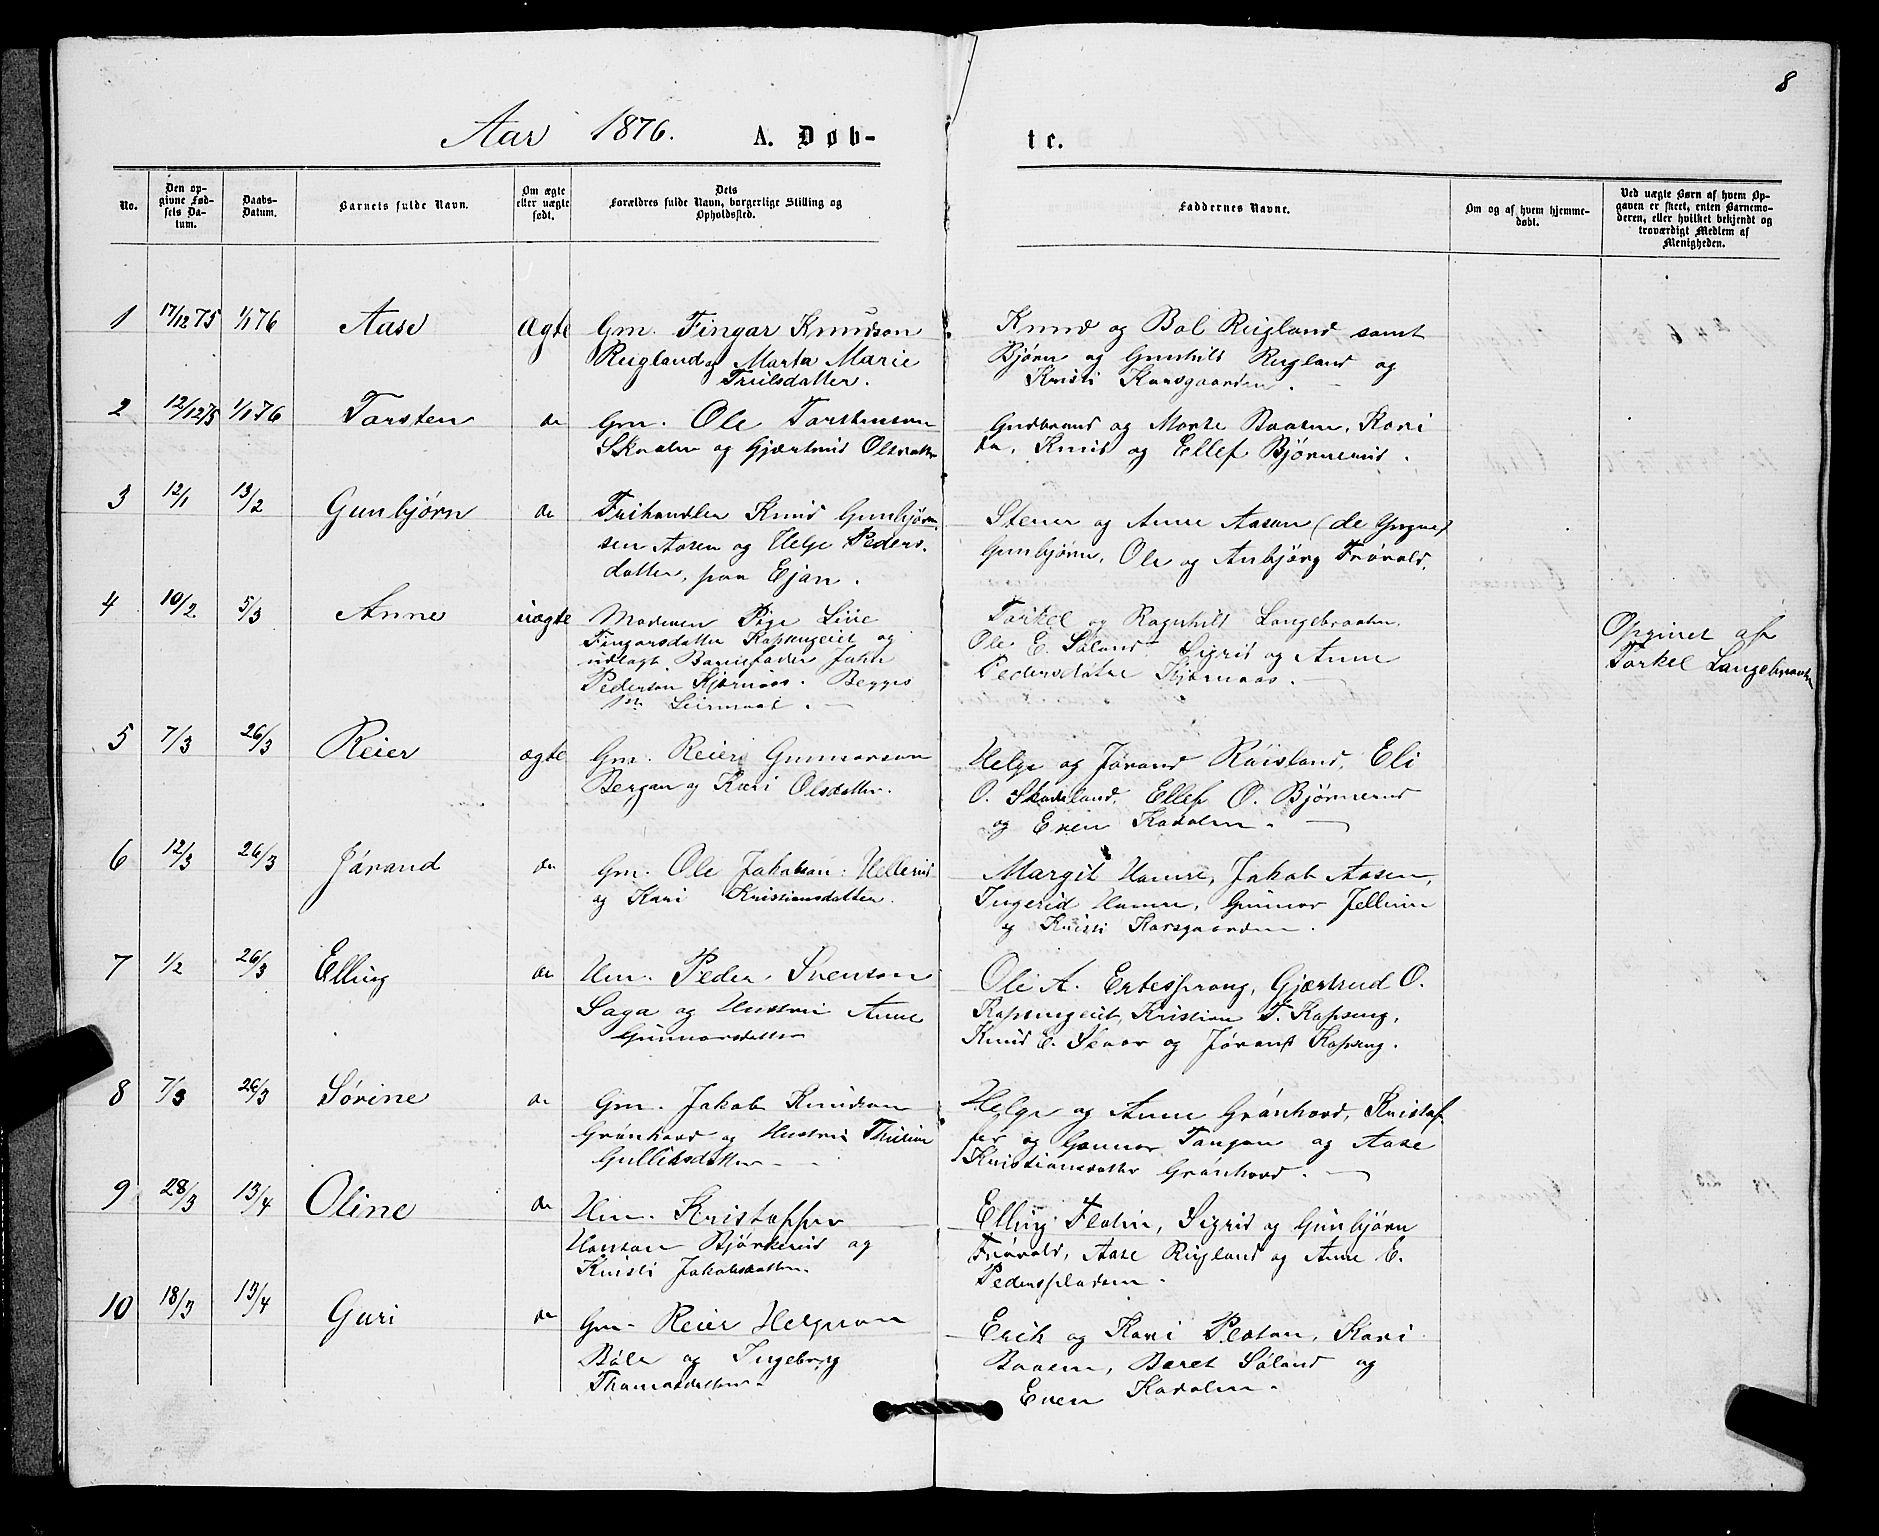 8
Aar 1876. A. Døb- te.
No.
Den op-
givne Fød-
sels Da-
tum.
Daabs-
Datum.
Barnets fulde Navn.
Om ægte
eller uægte
født.
Dets
Forældres fulde Navn, borgerlige Stilling og
Opholdssted.
Faddernes Navne.
Om og af hvem hjemme-
døbt.
Ved uægte Børn af hvem Op-
gaven er skeet, enten Barnemo-
deren, eller hvilket bekjendt og
troværdigt Medlem af
Menigheden.
1 17/12 75 1/1 76 Aase ægte Gm. Fingar Knudson
Rugland og Marta Marie
Trulsdatter.
Knud og Bol Rugland samt
Bjørn og Gunhild Rugland og
Kristi Korsgaarden.
2 12/12 75 1/1 76 Torsten do Gm. Ole Torstenson
og Gjærtrud Olsdatter
Gudbrand og Marte Braaten, Kari
do, Knud og Ellef Bjørnerud.
3 12/1 13/2 Gunbjørn do Frihandler Knud Gunbjørn
sen Aasen og Helge Peders-
datter, paa Ejan.
Stener og Anne Aasen (de Yngre)
Gunbjørn, Ole og Anbjørg Frøvold.
4 10/2 5/3 Anne uægte Moderen Pige Live
Fingarsdatter Kapsengeiet og
udlagt Barnefader John
Pederson Kjørnaas. Begges
1ste Leiermaal.
Torkel og Ragnhild Langebraaten,
Ole E. Søland Sigrid og Anne
Pedersdøtre Kjørnaas.
Opgivet af
Torkel Langebraaten
5 7/3 26/3 Reier ægte Gm. Reier Gunnarson
Bergan og Kari Olsdatter.
Helge og Jørand Røisland, Eli
O. Skadeland, Ellef O. Bjørnerud
og Even
6 12/3 26/3 Jørand do Gm. Ole Jakobson Hellerud
og Kari Kristiansdatter.
Margit Hamre, Jakob Aasen,
Ingerid Hamre, Gunnar Jellum
og Kristi Korsgaarden.
7 1/2 26/3 Elling do Hm. Peder Svenson
Saga og Hustru Anne
Gunnarsdatter
Ole A. Ertesprang, Gjærtrud O.
Kapsengeiet, Kristian T. Kapseng,
Knud E. og Jørand Kapseng.
8 7/3 26/3 Sørine do Gm. Jakob Knudson
Grønhovd og Hustru Thurine
Gulliksdatter
Helge og Anne Grønhovd, Kristof
fer og Gunnar Tangen og Aase
Kristiansdatter Grønhovd.
9 28/3 13/4 Oline do Hm. Kristoffer
Hanson Bjørkerud og
Kristi Jakobsdatter.
Elling Flatin, Sigrid og Gunbjørn
Frøvold, Aase Rugland og Anne E.
Pederspladsen.
10 18/3 13/4 Guri do Gm. Reier Helgeson
Bøle og Ingeborg
Thomasdatter.
Erik og Kari Platen, Kari
Braaten, Beret Søland og
Even